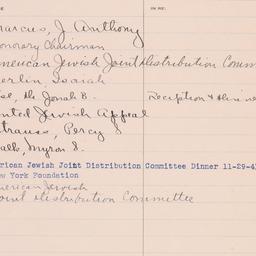 IN RE:
arcus, J. Anthony
onorary Chairman
merican Jewish Joint Distribution Comm
erlin, Isaiah
ise, Dr. Jonah B. Reception & Dinne
nited Jewish Appeal
trauss, Percy S
alk, Myron S.
erican Jewish Joint Distribution Committee Dinner 11-29-4
ew York Foundation
merican Jewish
oint Distribution Committee